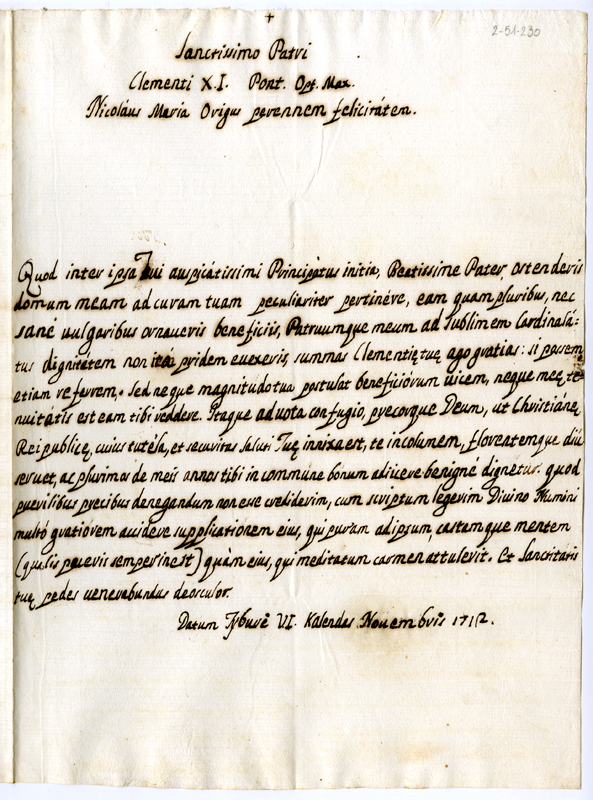 +
2-51-230
Sanctissimo Patri
Clementi XI. Pont. Opt. Max.
Nicolaus Maria Origus perennem felicitátem.
Quod inter ipsa Tui auspicátissimi Principátus initia, Beatissime Pater, ostenderis
domum meam ad curam tuam peculiariter pertinére, eam quam pluribus, nec
sané uulgaribus ornaueris beneficiis, Patruumque meum ad Sublimem Cardinalá-
tus dignitátem non ita pridem euexeris, summas Clementię tuę ago gratias: si possem
etiam referrem. Sed neque magnitudo tua postulat beneficiórum uicem, neque meę te-
nuitátis est eam tibi reddere. Itaque ad uota confugio, precorque Deum, ut Christiánę
Reipublicę, cuius tutéla, et securitas saluti Tuę innixa est, te incolumem, florentemque diu
seruet, ac plurimos de meis annos tibi in commune bonum adiicere benigné dignétur. quod
puerilibus precibus denegandum non esse crediderim, cum scriptum legerim Diuino Numini
multó gratiorem accidere supplicationem eius, qui puram ad ipsum, castamque mentem
(qualis pueris semper inest) quàm eius, qui meditatum carmen attulerit. Et Sanctitatis
tuę pedes uenerabundus deosculor.
Datum Tybure VI. Kalendas Nouembris 1712.